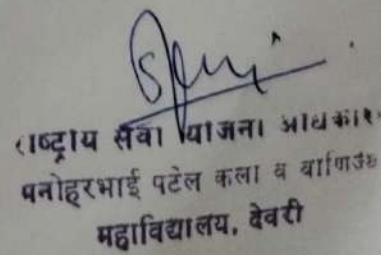 राष्ट्रीय सेवा योजना अधिकारी
मनोहरभाई पटेल कला व वाणिज्य
महाविद्यालय, देवरी